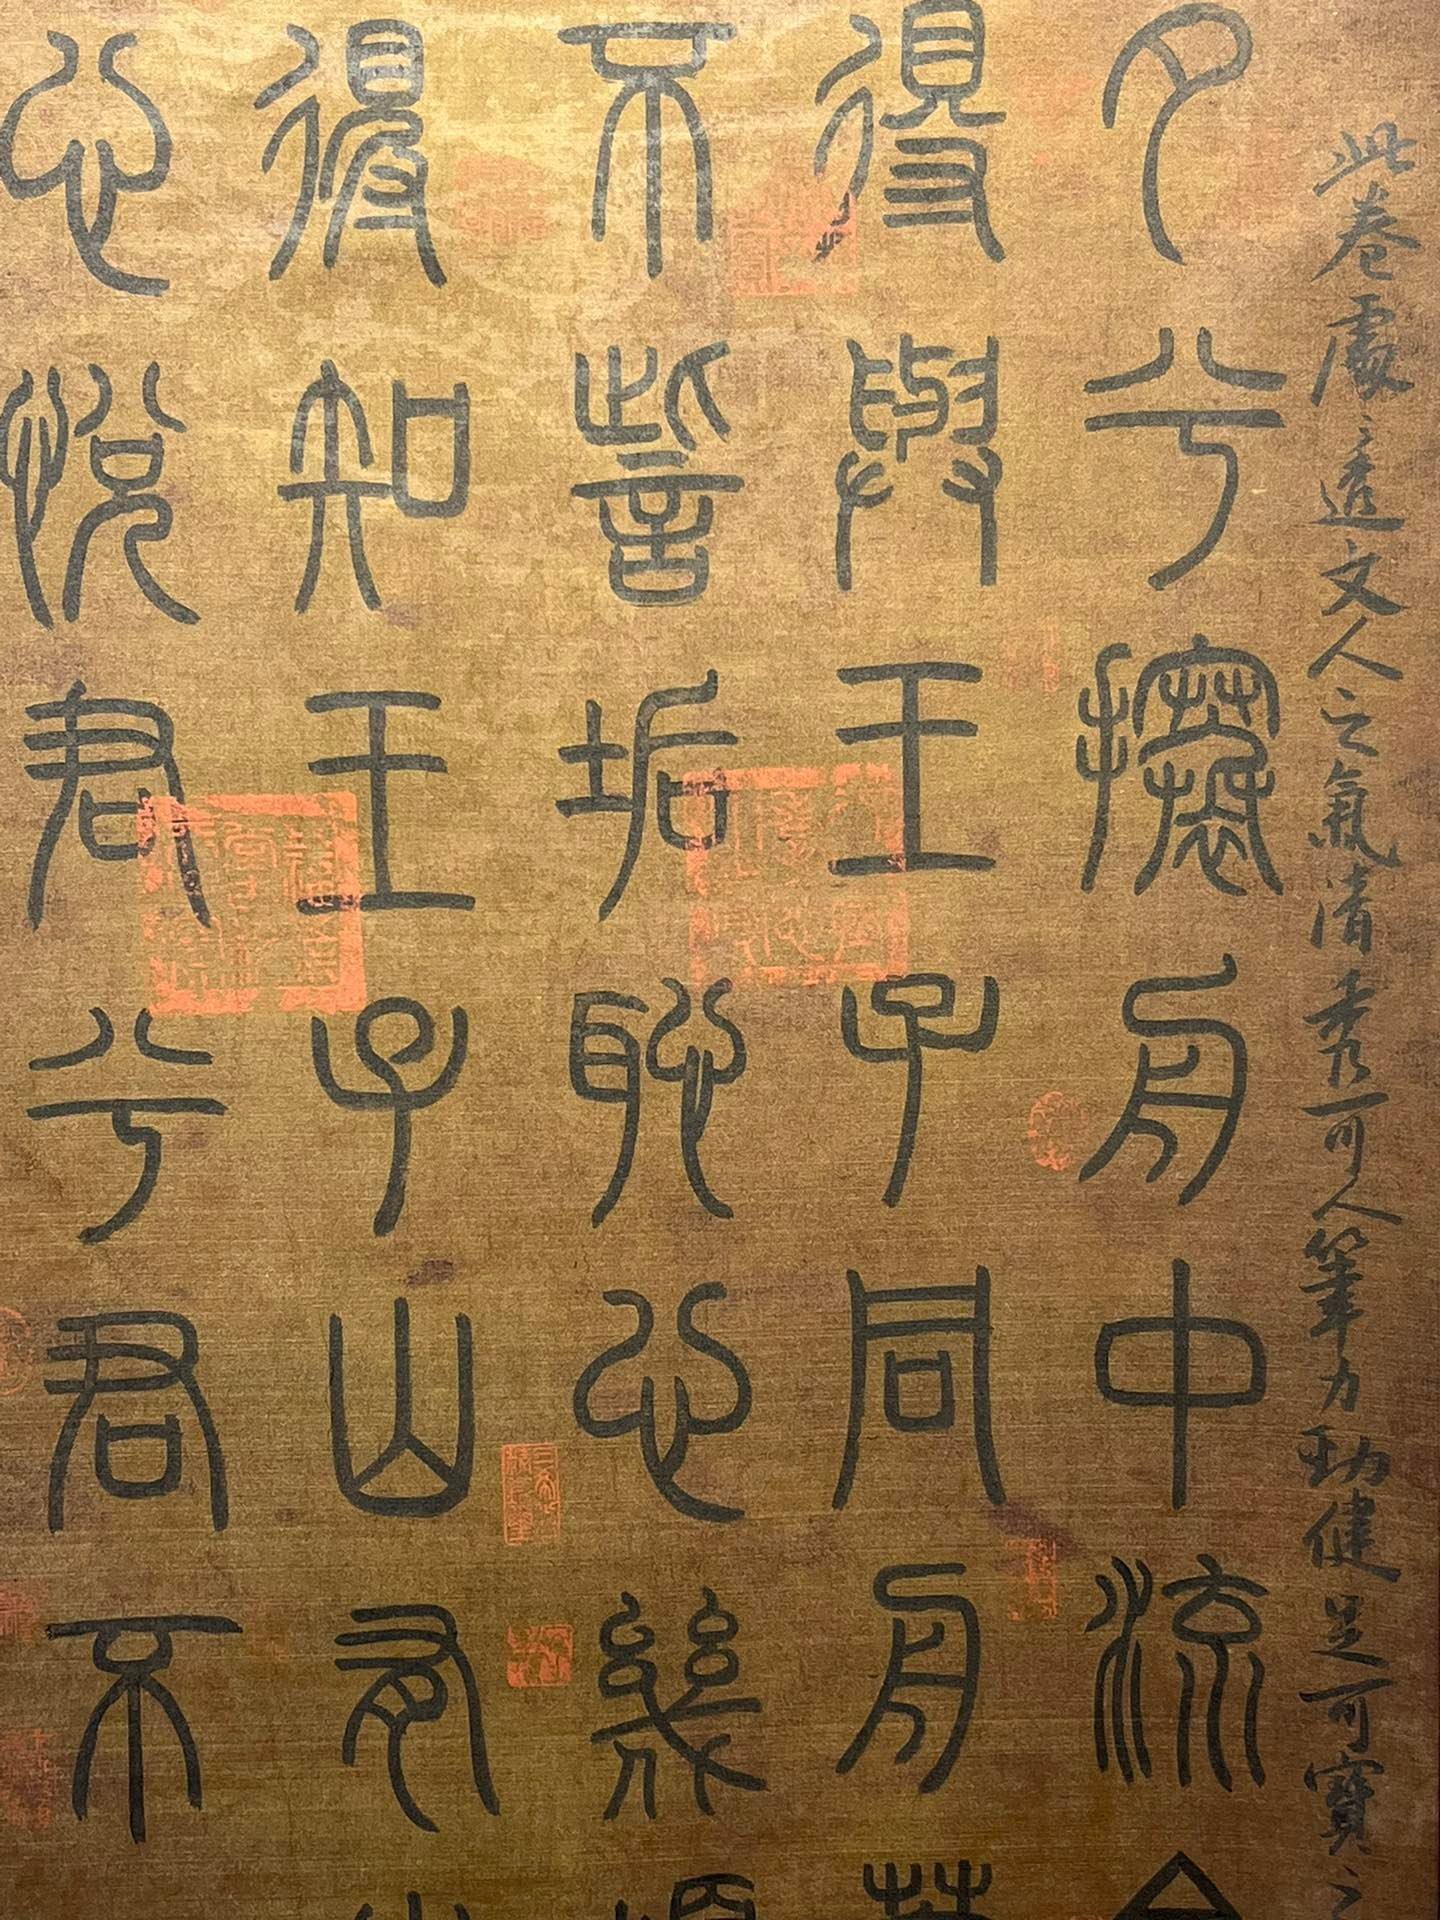 此卷處〻透文人之氣清秀可人筆力勁健足可寶之
夕兮攐舟中流今
得與王子同舟蒙
不訾垢恥心幾
得知王子山有
心悅君兮君不